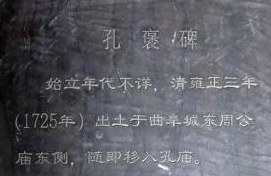 孔褒碑
始立年代不详，清雍正三年
(1725年）出土于曲阜城东周公
庙东侧，随即移入孔庙。